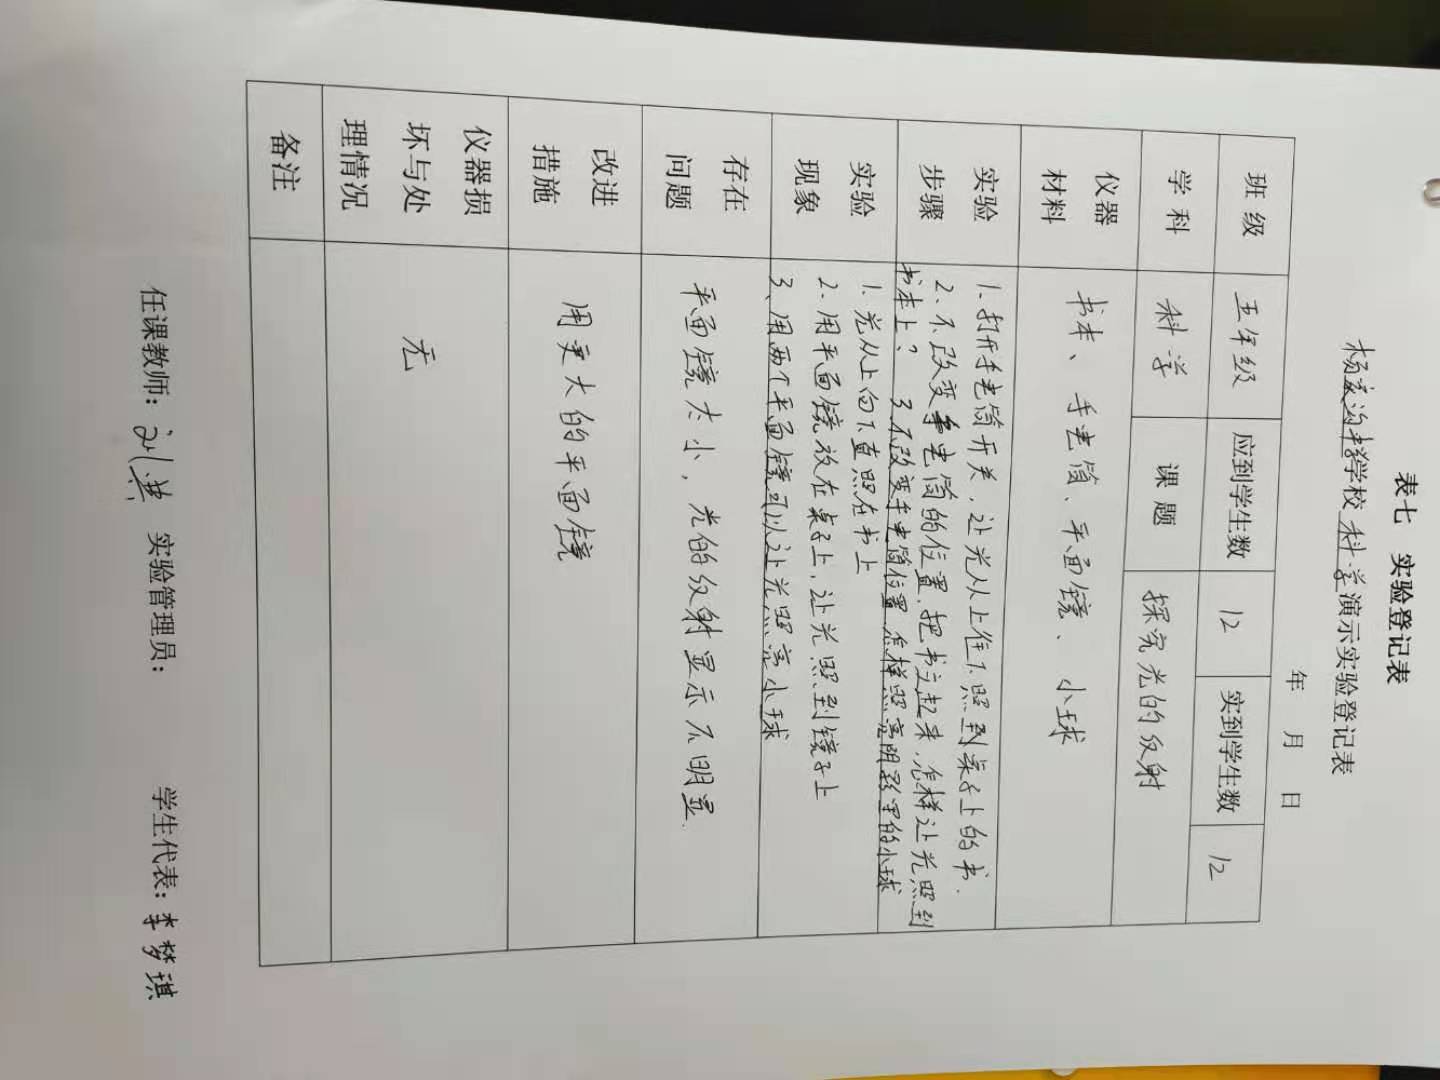 表七 实验登记表
杨家沟小学校科学演示实验登记表
年 月 日
班级 五年级 应到学生数 12 实到学生数 12
学科 科学 课题 探究光的反射
仪器材料 书本、手电筒、平面镜、小球
实验步骤 1.打开手电筒开关,让光从上往下照到桌子上的书.
2、不改变手电筒的位置,把书立起来,怎样让光照到
书本上? 3.不改变手电筒位置,怎样照亮阴影里的小球
实验现象 1.光从上向下直照在书上
2.用平面镜放在桌子上,让光照到镜子上
3、用两个平面镜可以让光照亮小球
存在问题 平面镜太小,光的反射显示不明显.
改进措施 用更大的平面镜
仪器损坏与处理情况 无
备注
任课教师: 刘 实验管理员: 学生代表:李梦琪